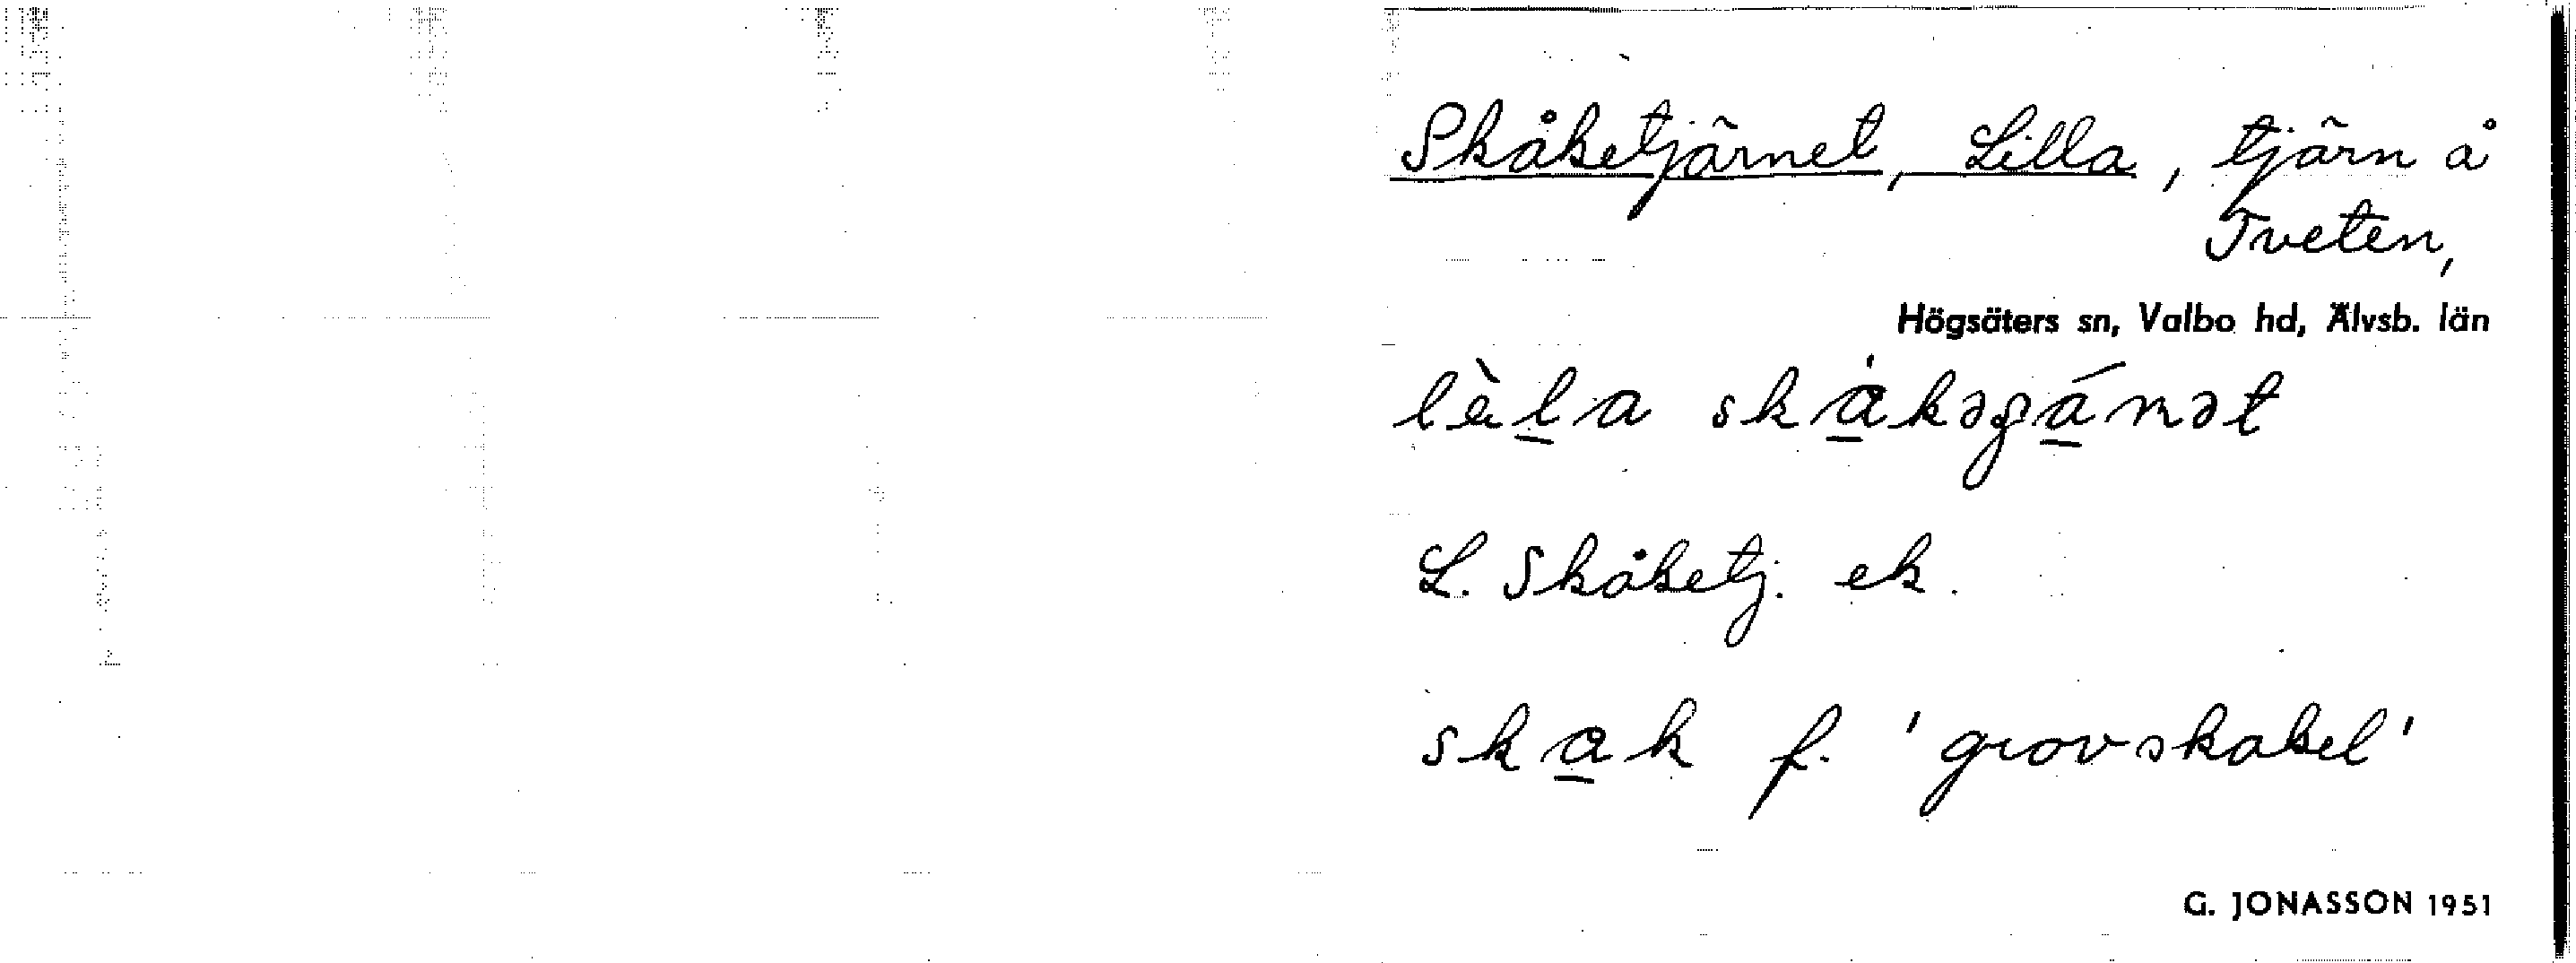 Skåketjärnet, Lilla, tjärn å
Tveten,
Högsäters sn, Valbo hd, Älvsb. län
L. Skåketj. ek.
skak f. 'grovskakel'
G. JONASSON 1951